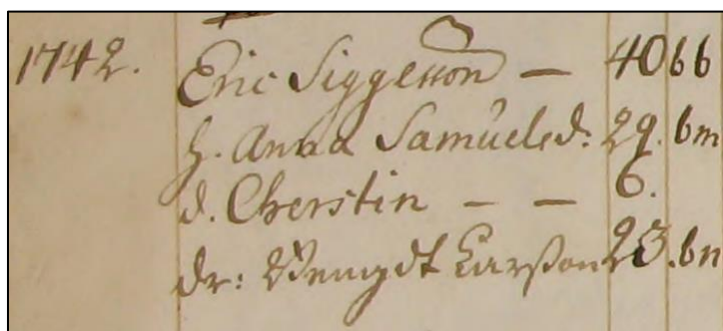 1742. Eric Siggesson — 40 bb
h. Anna Samuelsd: 29. bm
d. Cherstin — — 6.
dr: Bengdt Larsson 23. bn